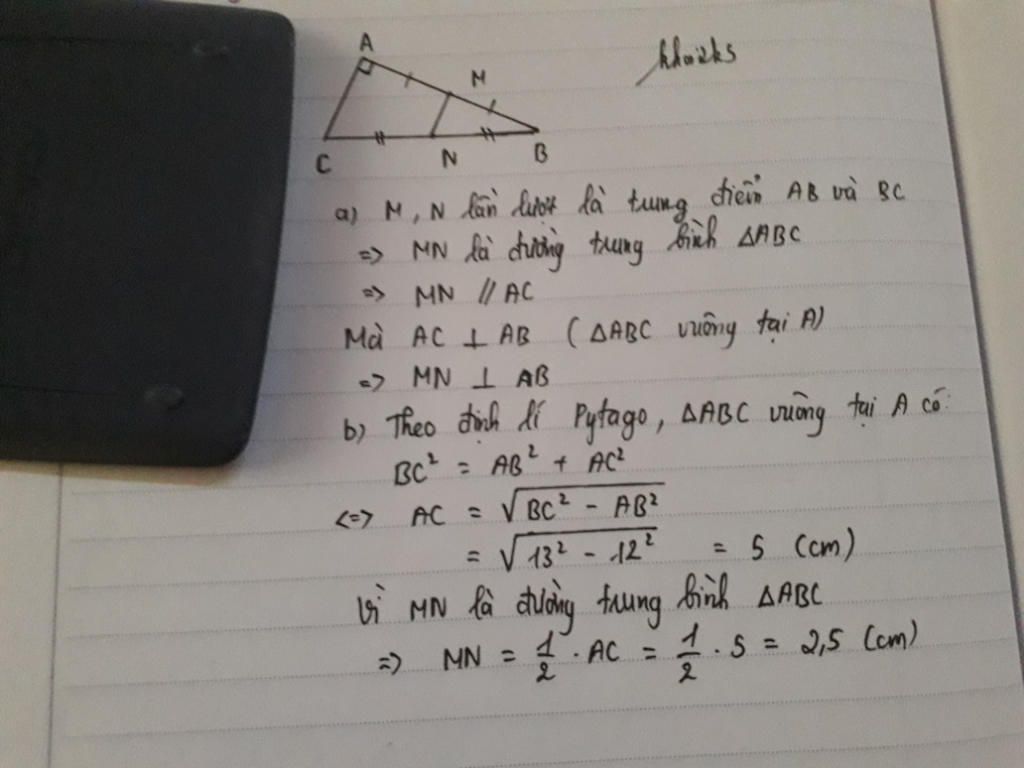 A
M
khoi2k5
C
N
B
a) M, N lần lượt là trung điểm AB và BC
=> MN là đường trung bình △ABC
=> MN // AC
Mà AC ⊥ AB (△ABC vuông tại A)
=> MN ⊥ AB
b) Theo định lí Pytago, △ABC vuông tại A có:
BC² = AB² + AC²
<=> AC = √(BC² - AB²)
= √(13² - 12²) = 5 (cm)
Vì MN là đường trung bình △ABC
=> MN = 1/2 . AC = 1/2 . 5 = 2,5 (cm)